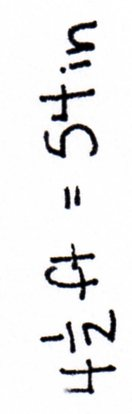 4 1/2 ft = 54 in